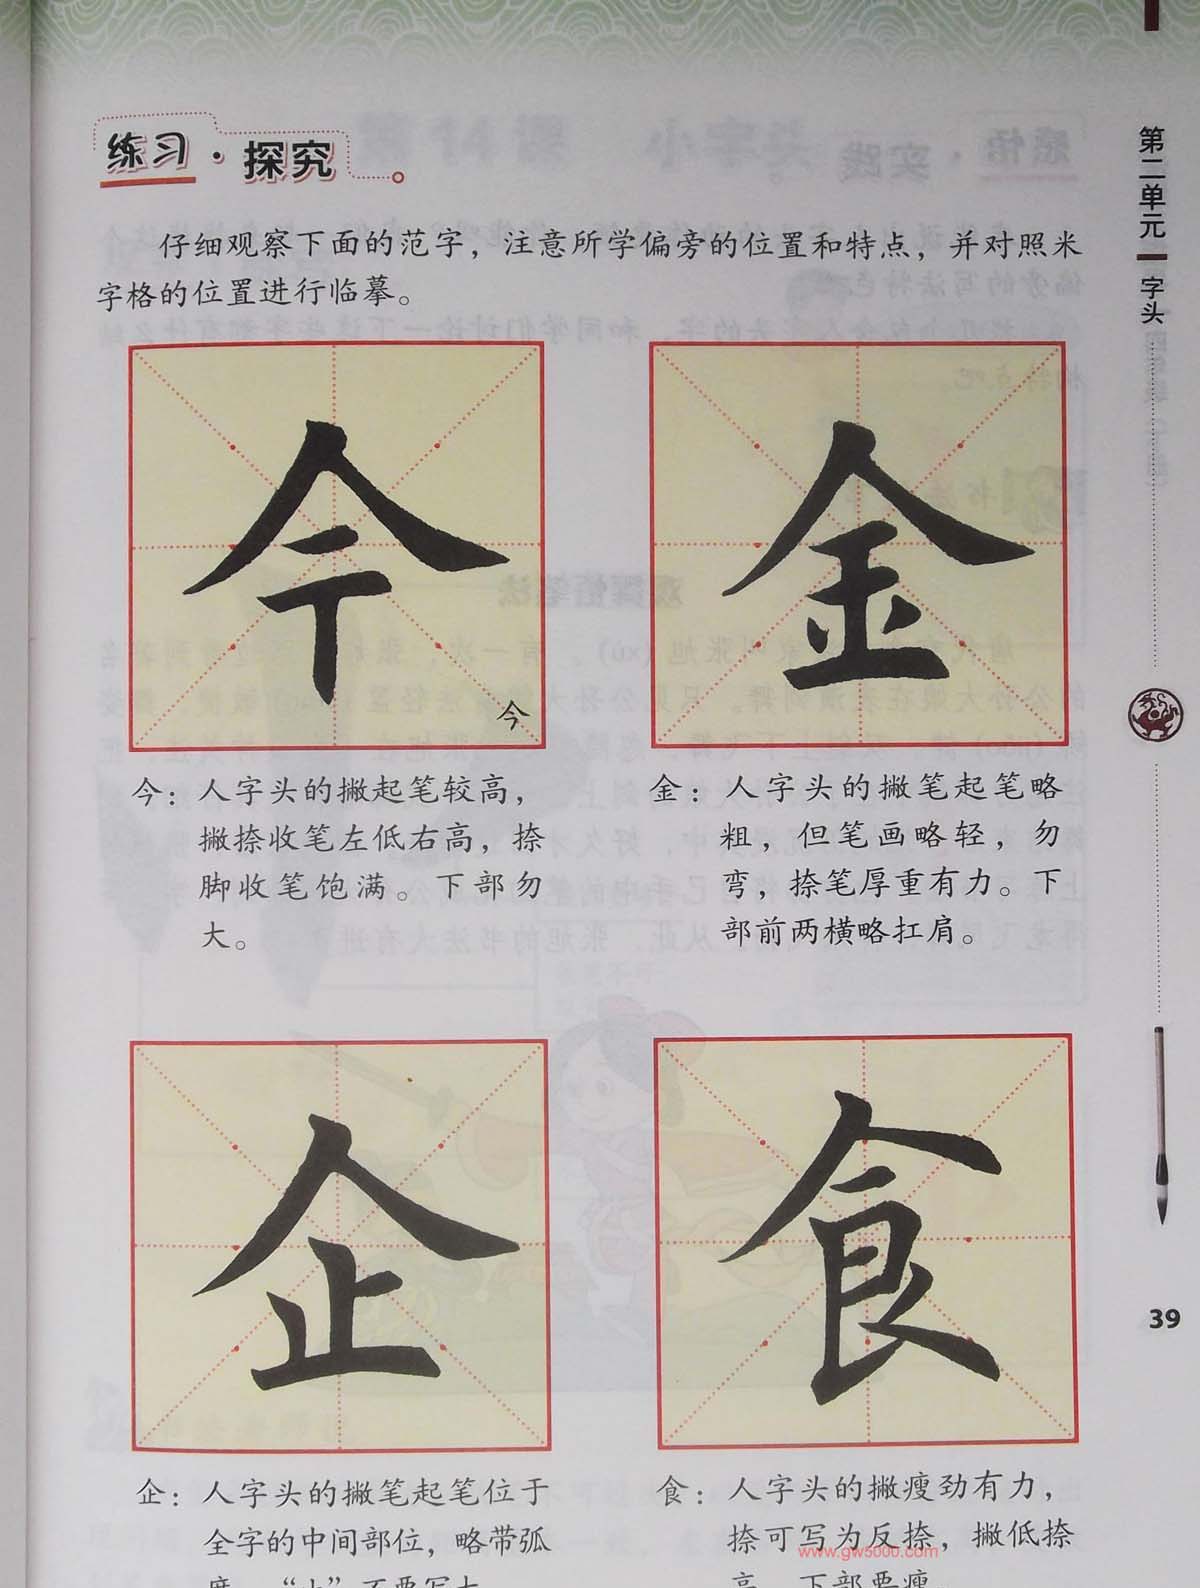 练习·探究
仔细观察下面的范字，注意所学偏旁的位置和特点，并对照米
字格的位置进行临摹。
今
金
今
今：人字头的撇起笔较高，
撇捺收笔左低右高，捺
脚收笔饱满。下部勿
大。
金：人字头的撇笔起笔略
粗，但笔画略轻，勿
弯，捺笔厚重有力。下
部前两横略扛肩。
企
食
企：人字头的撇笔起笔位于
全字的中间部位，略带弧
度，“止”不要写大
食：人字头的撇瘦劲有力，
捺可写为反捺，撇低捺
高，下部要瘦。
www.gw5000.com
第二单元
字头
39